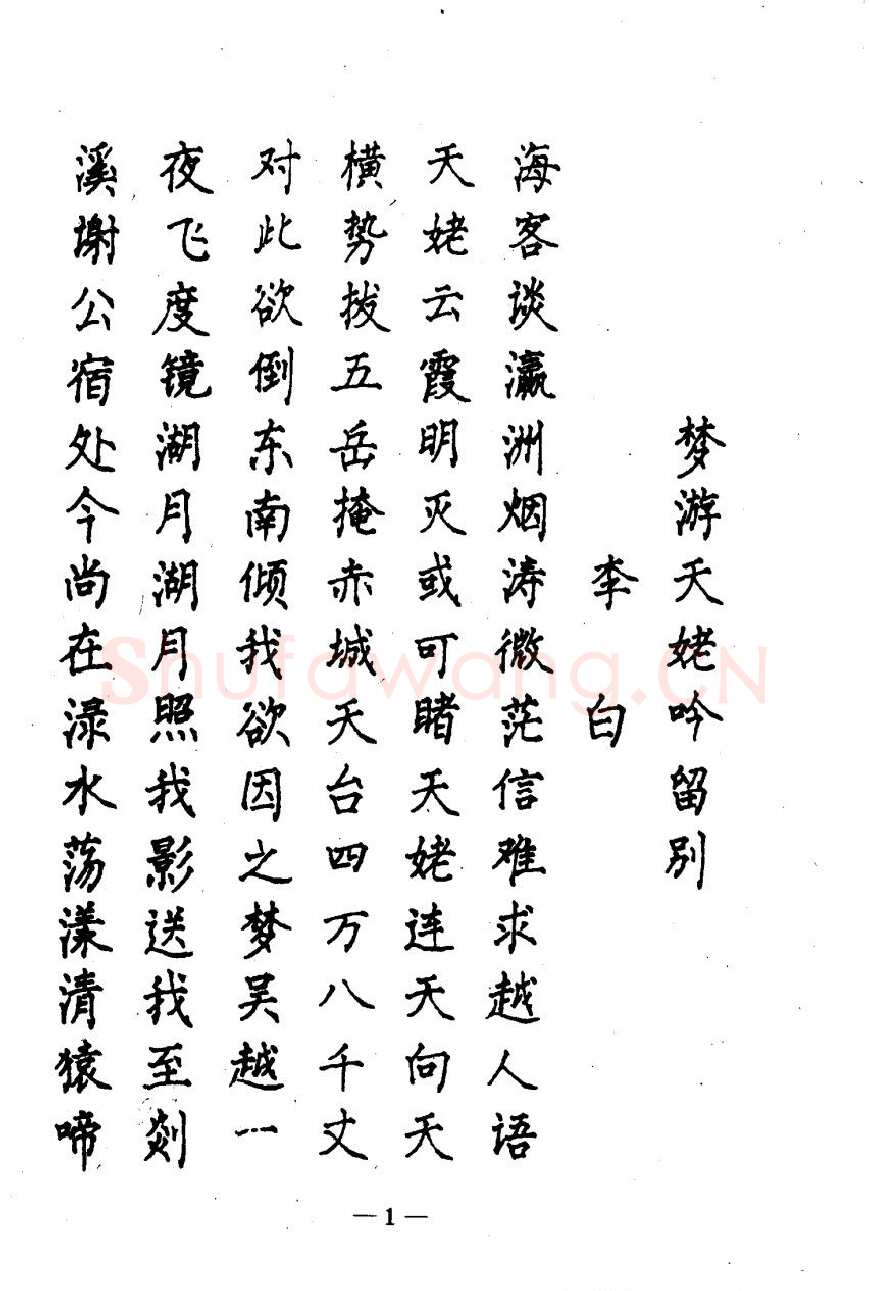 梦游天姥吟留别
李白
海客谈瀛洲烟涛微茫信难求越人语
天姥云霞明灭或可睹天姥连天向天
横势拔五岳掩赤城天台四万八千丈
对此欲倒东南倾我欲因之梦吴越一
夜飞度镜湖月湖月照我影送我至剡
溪谢公宿处今尚在渌水荡漾清猿啼
Shufawang.CN
—1—